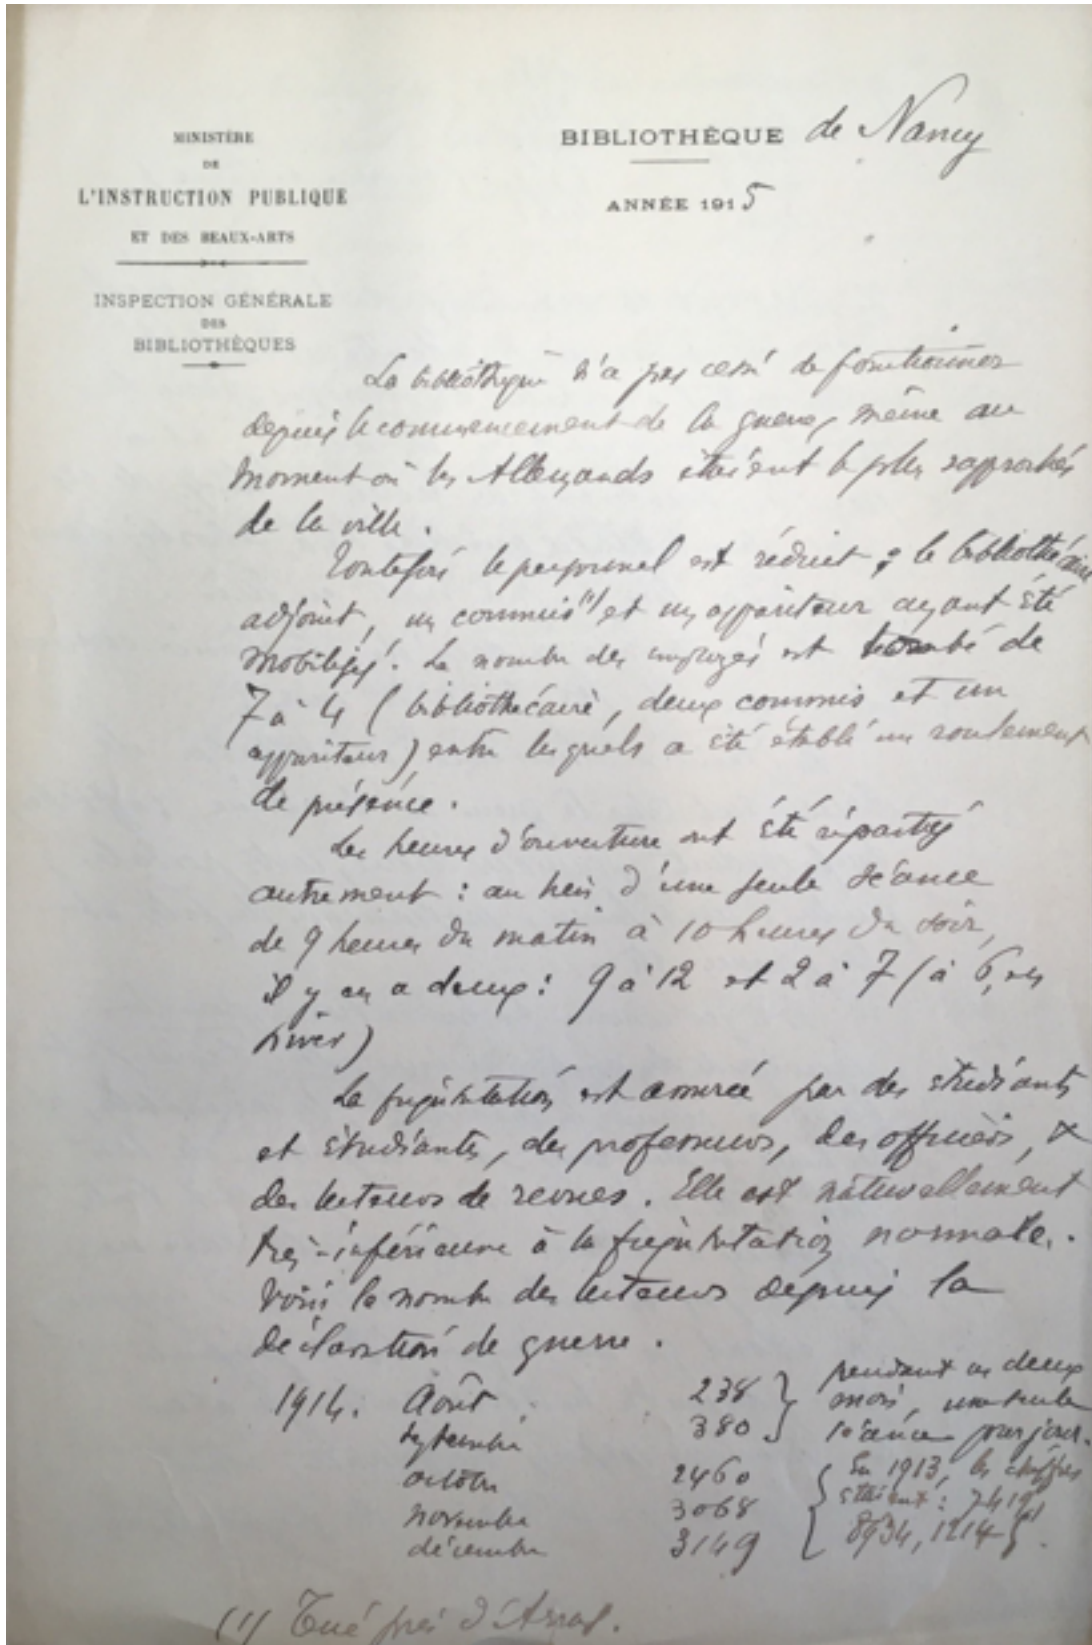 MINISTÈRE
DE
L'INSTRUCTION PUBLIQUE
ET DES BEAUX-ARTS
INSPECTION GÉNÉRALE
DES
BIBLIOTHÈQUES
BIBLIOTHÈQUE de Nancy
ANNÉE 1915
La bibliothèque n'a pas cessé de fonctionner
depuis le commencement de la guerre, même au
moment où les Allemands étaient le plus rapprochés
de la ville.
Toutefois le personnel est réduit ; le bibliothécaire
adjoint, un commis (1) et un appariteur ayant été
mobilisés. Le nombre des employés est tombé de
7 à 4 (bibliothécaire, deux commis et un
appariteur) entre lesquels a été établi un roulement
de présence.
Les heures d'ouverture ont été réparties
autrement : au lieu d'une seule séance
de 9 heures du matin à 10 heures du soir,
il y en a deux : 9 à 12 et 2 à 7 (à 6, en
hiver)
La fréquentation est assurée par des étudiants
et étudiantes, des professeurs, des officiers, &
des lecteurs de revues. Elle est naturellement
très-inférieure à la fréquentation normale.
Voici le nombre des lecteurs depuis la
déclaration de guerre.
1914. Août 238 } pendant ces deux
septembre 380 } mois, une seule
séance par jour.
octobre 2460 { En 1913, les chiffres
novembre 3068 étaient :
décembre 3149
(1) Tué près d'Arras.